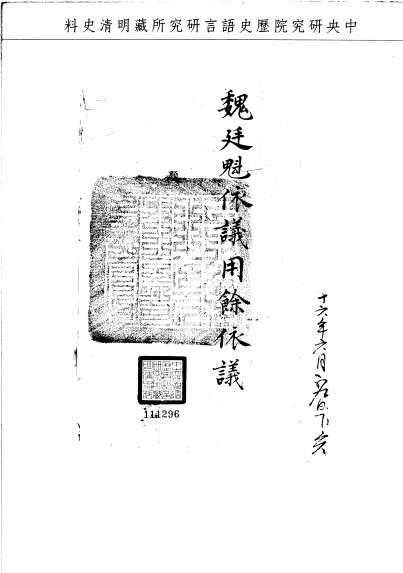 中央研究院歷史語言研究所藏明清史料
魏廷魁依議用餘依議
十六年六月
111296